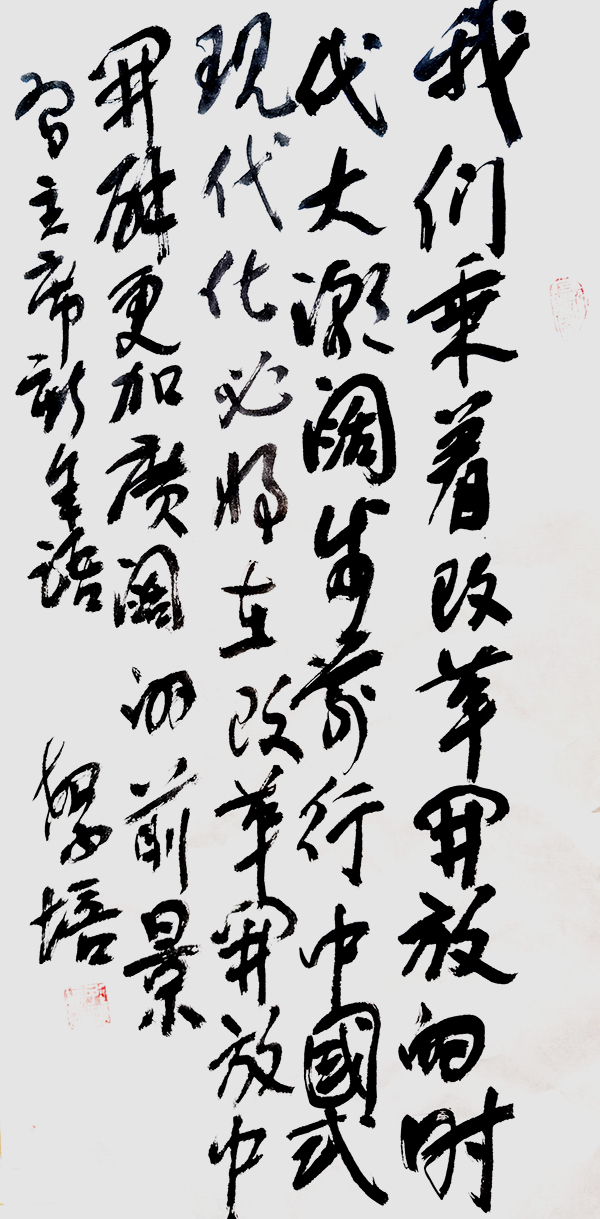 我们乘着改革開放的时
代大潮阔步前行中國式
现代化必将在改革開放中
開辟更加廣阔的前景
習主席新年語
培